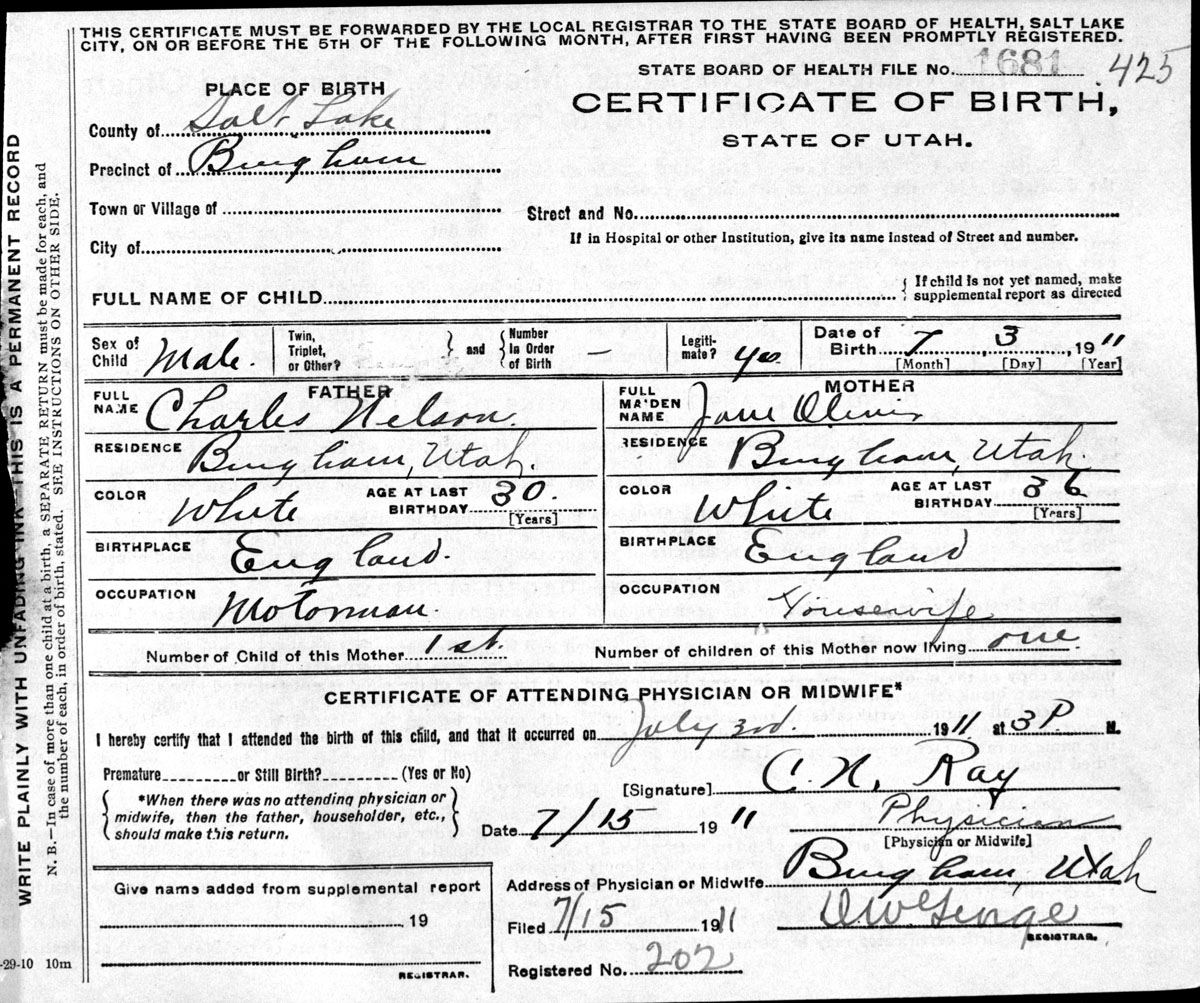 THIS CERTIFICATE MUST BE FORWARDED BY THE LOCAL REGISTRAR TO THE STATE BOARD OF HEALTH, SALT LAKE
CITY, ON OR BEFORE THE 5TH OF THE FOLLOWING MONTH, AFTER FIRST HAVING BEEN PROMPTLY REGISTERED.
STATE BOARD OF HEALTH FILE No. 1681 425
PLACE OF BIRTH
CERTIFICATE OF BIRTH,
STATE OF UTAH.
County of Salt Lake
Precinct of Bingham
Town or Village of
Street and No.
City of
If in Hospital or other Institution, give its name instead of Street and number.
FULL NAME OF CHILD
{ If child is not yet named, make
supplemental report as directed
Sex of Child Male
Twin, Triplet, or Other? } and { Number In Order of Birth —
Legiti- mate? yes
Date of Birth 7, 3, 1911
[Month] [Day] [Year]
FATHER
MOTHER
FULL NAME Charles Nelson.
FULL MAIDEN NAME Jane
RESIDENCE Bingham, Utah.
RESIDENCE Bingham, Utah.
COLOR White AGE AT LAST BIRTHDAY 30. [Years]
COLOR White AGE AT LAST BIRTHDAY 36 [Years]
BIRTHPLACE England.
BIRTHPLACE England
OCCUPATION Motorman.
OCCUPATION Housewife
Number of Child of this Mother 1st.
Number of children of this Mother now living one
CERTIFICATE OF ATTENDING PHYSICIAN OR MIDWIFE*
I hereby certify that I attended the birth of this child, and that it occurred on July 3rd. 1911 at 3 P. M.
Premature or Still Birth? (Yes or No)
{ *When there was no attending physician or
midwife, then the father, householder, etc.,
should make this return. }
[Signature] C. N. Ray
Date 7/15 1911
Physician
[Physician or Midwife]
Address of Physician or Midwife Bingham, Utah
Give name added from supplemental report
19
REGISTRAR.
Filed 7/15 1911
REGISTRAR.
Registered No. 202
-29-10 10m
WRITE PLAINLY WITH UNFADING INK—THIS IS A PERMANENT RECORD
N. B.—In case of more than one child at a birth, a SEPARATE RETURN must be made for each, and
the number of each, in order of birth, stated. SEE INSTRUCTIONS ON OTHER SIDE.